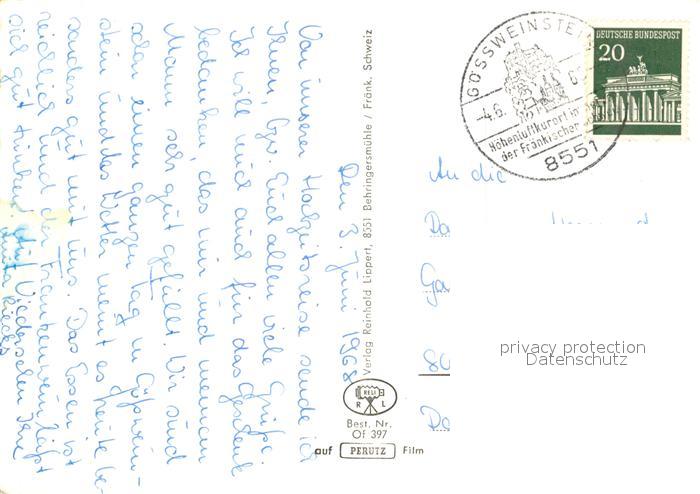 Den 3. Juni 1968
Von unserer Hochzeitsreise sende ich
Ihnen, Gys. und allen viele Grüße
Ich will mich auch für das Geschenk
bedanken, das mir und meinem
Mann sehr gut gefällt. Wir sind
schon einen ganzen Tag in Gößwein-
stein und das Wetter meint es heute be-
sonders gut mit uns. Das Essen ist
reichlich und der Frankenwein läßt
sich gut trinken. Auf Wiedersehen Ihre
Verlag Reinhold Lippert, 8551 Behringersmühle / Fränk. Schweiz
RELI
R L
Best. Nr.
Of 397
auf PERUTZ Film
GÖSSWEINSTEIN
4.6.
Höhenluftkurort in
der Fränkischen
8551
DEUTSCHE BUNDESPOST
20
An die
privacy protection
Datenschutz